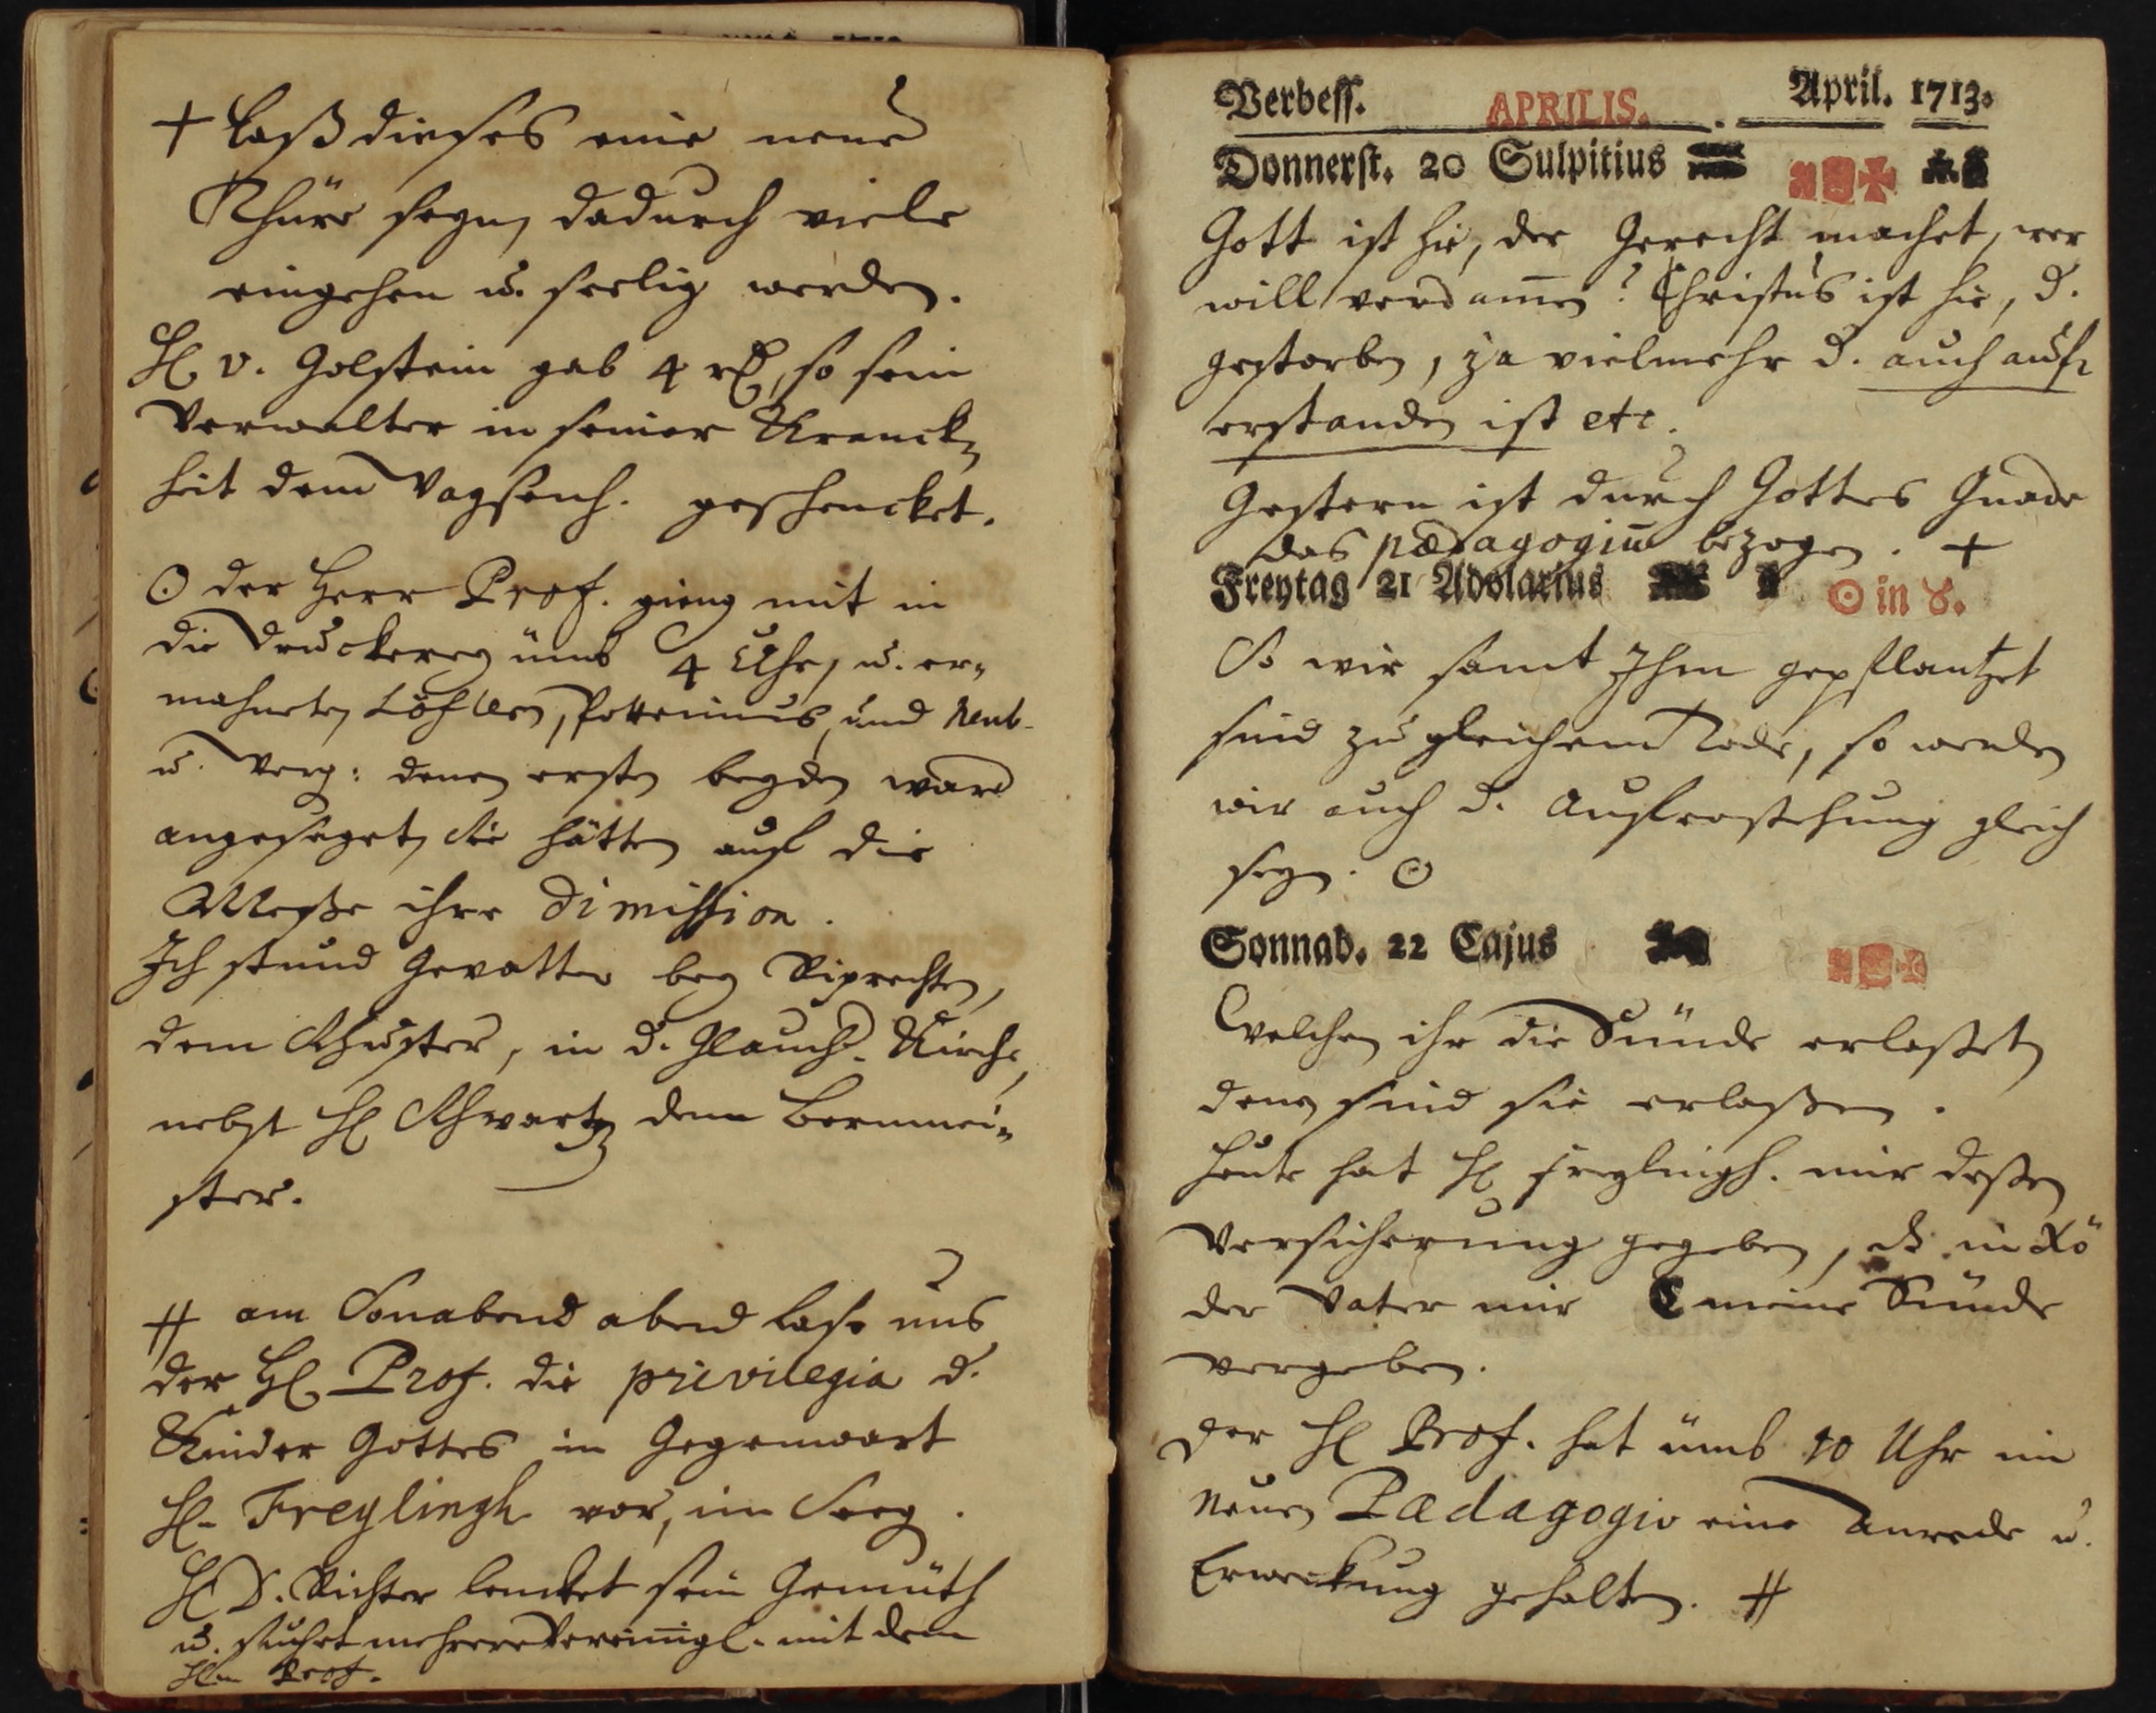 + Laß dieses eine neue
Thüre seyn, dadurch viele
eingehen u. seelig werden.
H. v. Golstein gab 4 rth, so sein
Verwalter in seiner Kranck-
heit dem Waysenh. geschencket.
⊙ der Herr Prof. gieng mit in
die Druckerey ümb 4 Uhr, u. er-
mahnete und Neub-
u. denen ersten beyden ward
angesaget, sie hätten auf die
Meße ihre Dimission.
Ich stund Gevatter bey Riprechten,
dem Schuster, in d. Glauch. Kirche,
nebst H. Schwartz dem Bornmei-
ster.
# am Sonabend abend lase uns
der H. Prof. die privilegia d.
Kinder Gottes in Gegenwart
H. Freylingh. vor, im
H. D. Richter lencket sein Gemüth
u. suchet mehrere Vereinigl. mit dem
Hln Prof.
Verbess. APRILIS. April. 1713.
Donnerst. 20 Sulpitius
Gott ist hie, der Gerecht machet, wer
will verdam̅en? Christus ist hie, d.
gestorben, ja vielmehr d. auch auf-
erstanden ist etc.
Gestern ist durch Gottes Gnade
das pædagogiu̅ bezogen. +
Freytag 21 Adolarius ⊙ in ♉.
So wir samt Ihm gepflantzet
sind zu gleichem Tode, so werden
wir auch d. Auferstehung gleich
seyn. ⊙
Sonnab. 22 Cajus
Welchen ihr die Sünde erlaßet,
denen sind sie erlaßen.
Heute hat H. Freylingh. mir deßen
Versicherung gegeben, dß in Xo
der Vater mir meine Sünde
vergeben.
Der H. Prof. hat ümb 10 Uhr im
neuen Pædagogio eine Anrede u.
Erweckung gehalten. #